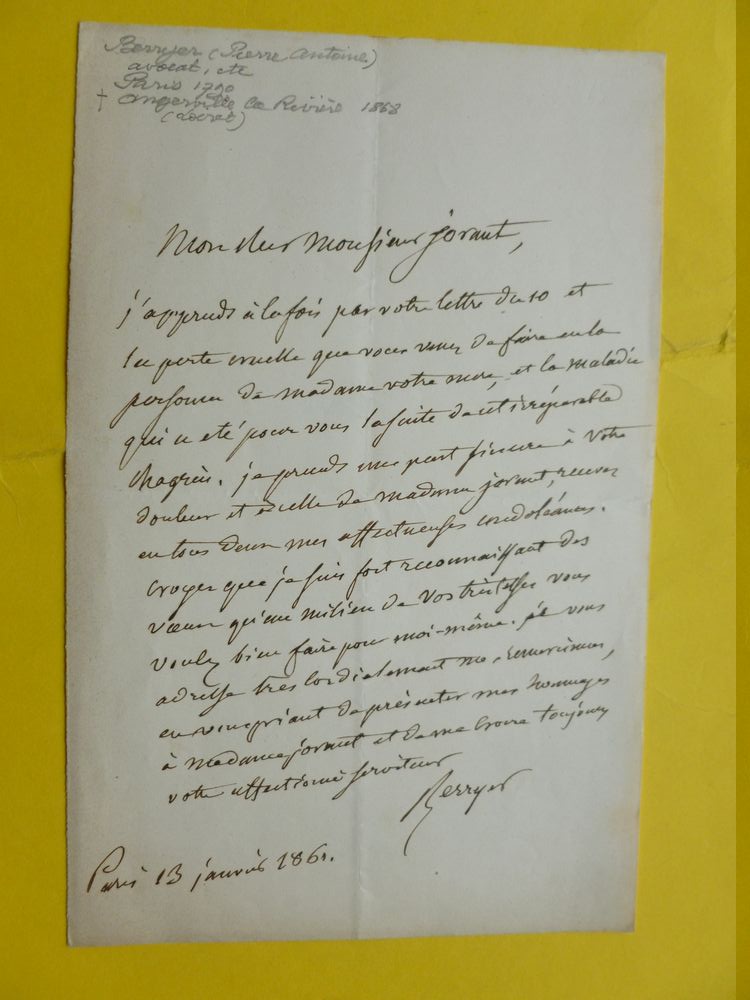 Berryer (Pierre Antoine)
avocat, etc
Paris 1790
† Angerville la Rivière 1868
(Loiret)
Mon cher Monsieur jorant,
j'apprends à la fois par votre lettre du 10 et
la perte cruelle que vous venez de faire en la
personne de madame votre mere, et la maladie
qui a eté pour vous la suite de cet irréparable
chagrin. je prends une part sincere à votre
douleur et à celle de madame jorant, recevez
en tous deux mes affectueuses condoléances.
croyez que je suis fort reconnaissant des
vœux qu'au milieu de vos tristesses vous
voulez bien faire pour moi-même. je vous
adresse très cordialement mes remerciemens,
en vous priant de présenter mes hommages
à madame jorant et de me croire toujours
votre affectionné serviteur
Berryer
Paris 13 janvier 1861.